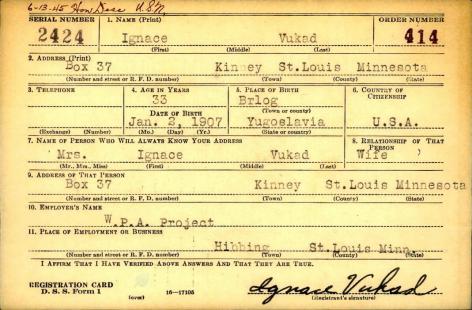 6-13-45 Hon Disc U.S.N.
SERIAL NUMBER 1. NAME (Print) ORDER NUMBER
2424 Ignace Vukad 414
(First) (Middle) (Last)
2. ADDRESS (Print)
Box 37 Kinney St.Louis Minnesota
(Number and street or R. F. D. number) (Town) (County) (State)
3. TELEPHONE 4. AGE IN YEARS 5. PLACE OF BIRTH 6. COUNTRY OF CITIZENSHIP
33 Brlog
DATE OF BIRTH (Town or county)
Jan. 2, 1907 Yugoslavia U.S.A.
(Exchange) (Number) (Mo.) (Day) (Yr.) (State or country)
7. NAME OF PERSON WHO WILL ALWAYS KNOW YOUR ADDRESS 8. RELATIONSHIP OF THAT PERSON
Mrs. Ignace Vukad Wife
(Mr., Mrs., Miss) (First) (Middle) (Last)
9. ADDRESS OF THAT PERSON
Box 37 Kinney St.Louis Minnesota
(Number and street or R. F. D. number) (Town) (County) (State)
10. EMPLOYER'S NAME
W.P.A. Project
11. PLACE OF EMPLOYMENT OR BUSINESS
Hibbing St.Louis Minn.
(Number and street or R. F. D. number) (Town) (County) (State)
I AFFIRM THAT I HAVE VERIFIED ABOVE ANSWERS AND THAT THEY ARE TRUE.
REGISTRATION CARD
D. S. S. Form 1 (over) 16—17105
Ignace Vukad
(Registrant's signature)